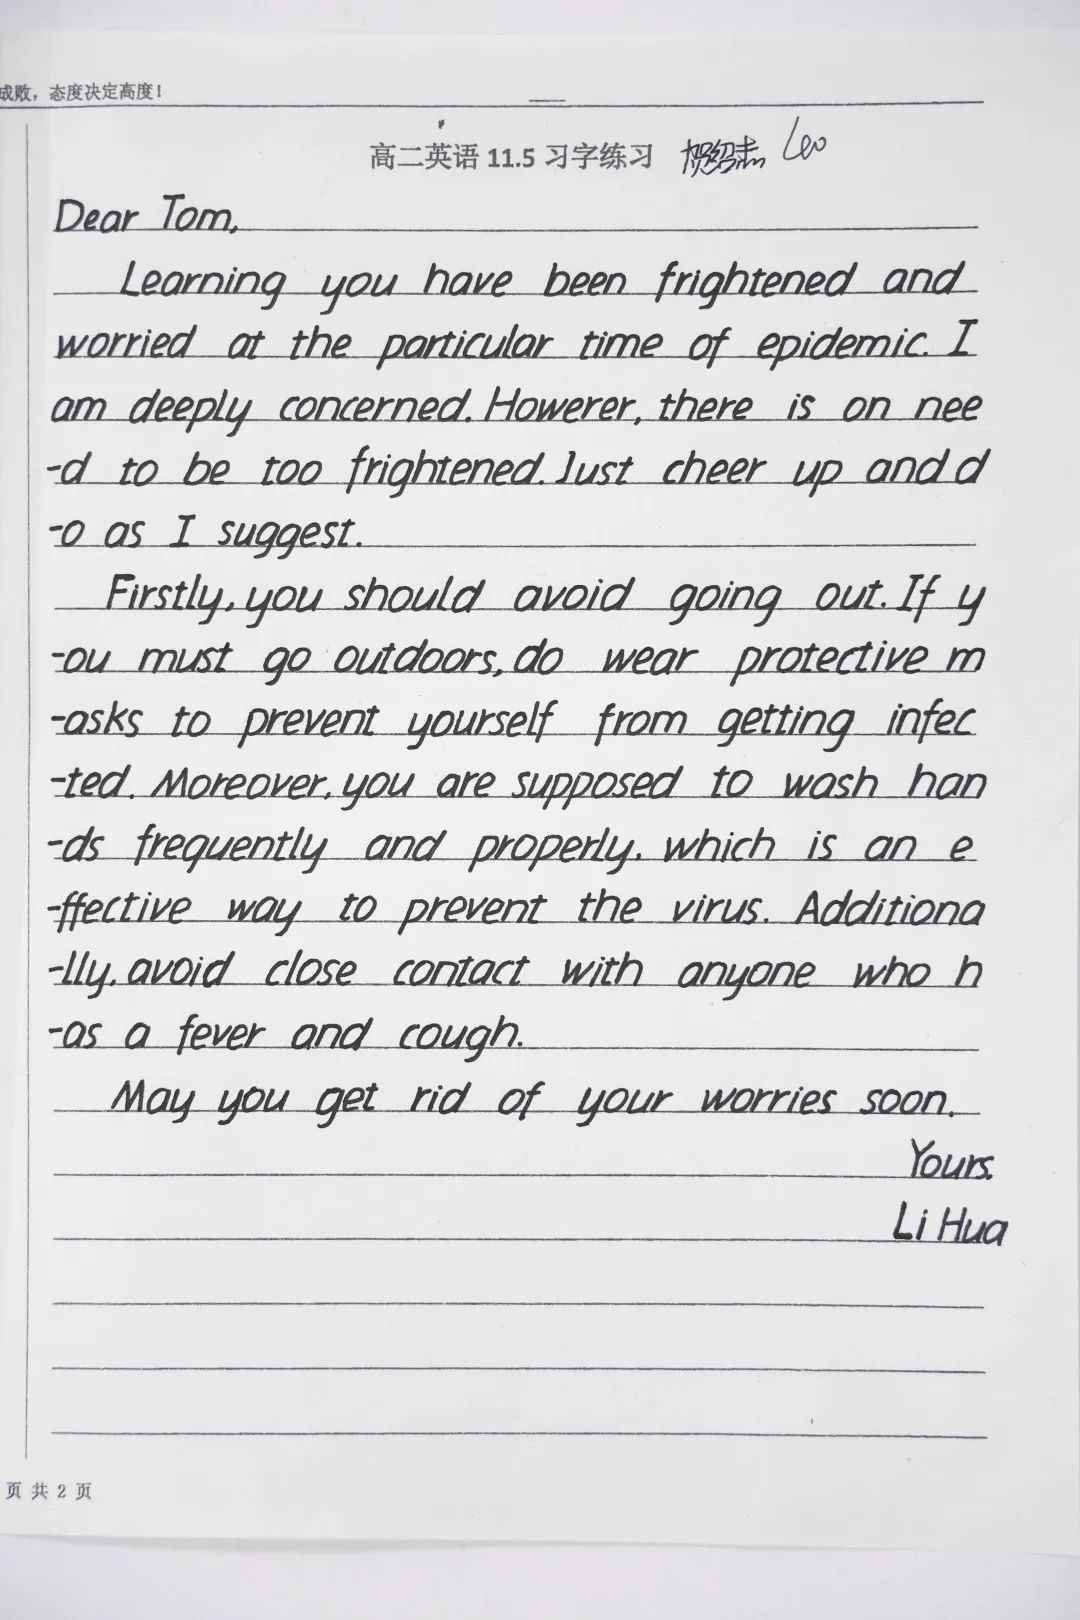 成败，态度决定高度！
高二英语 11.5 习字练习 Leo
Dear Tom,
Learning you have been frightened and
worried at the particular time of epidemic. I
am deeply concerned. Howerer, there is on nee
-d to be too frightened. Just cheer up and d
-o as I suggest.
Firstly, you should avoid going out. If y
-ou must go outdoors, do wear protective m
-asks to prevent yourself from getting infec
-ted. Moreover, you are supposed to wash han
-ds frequently and properly. which is an e
-ffective way to prevent the virus. Additiona
-lly, avoid close contact with anyone who h
-as a fever and cough.
May you get rid of your worries soon.
Yours.
Li Hua
页 共 2 页